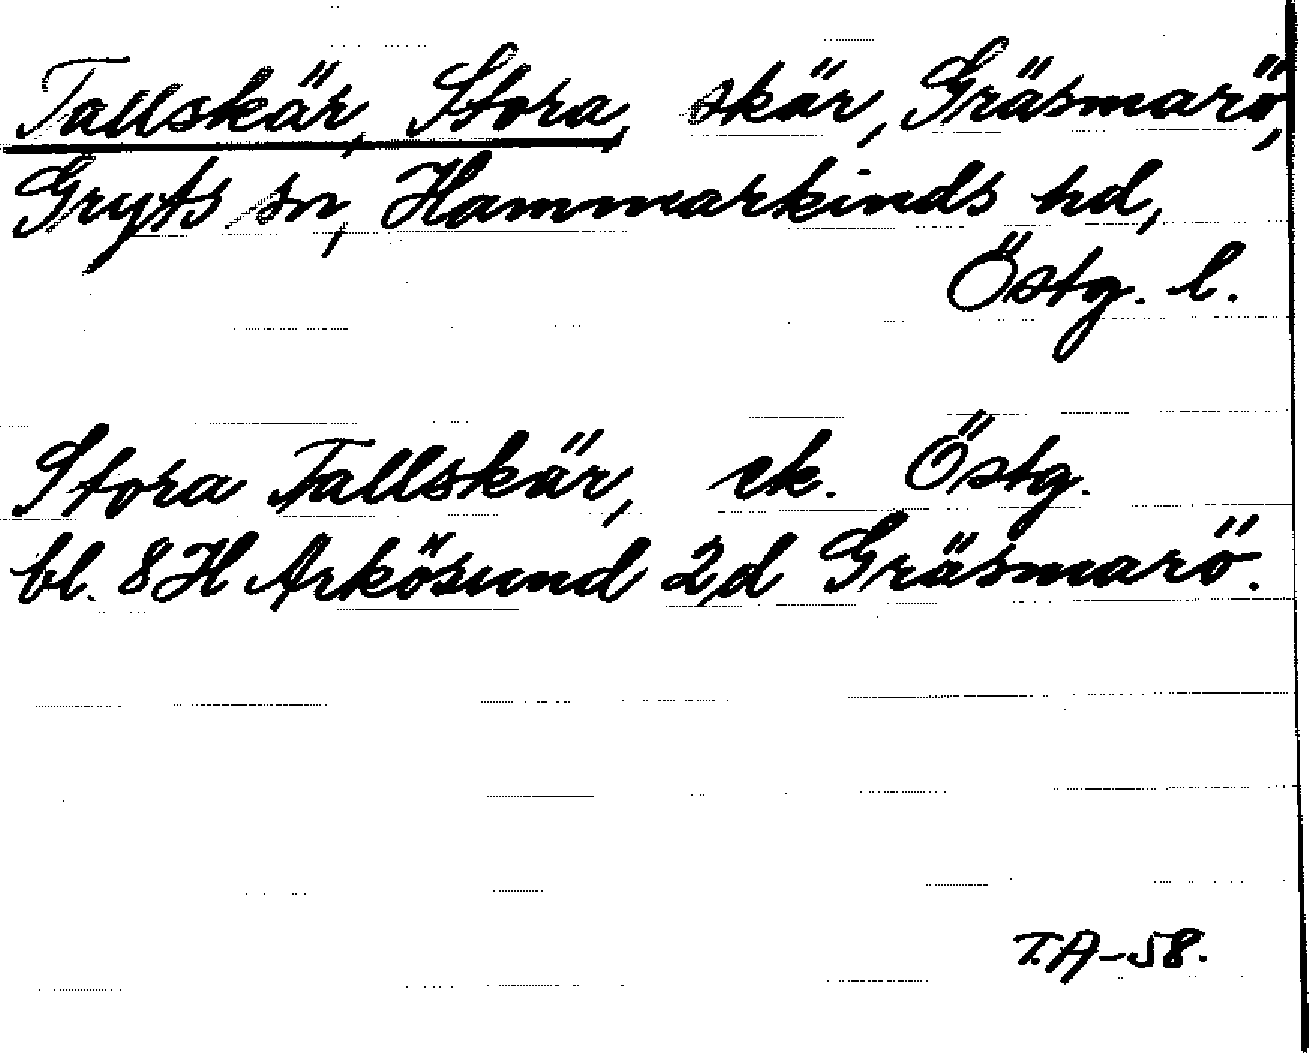 Tallskär, Stora, skär, Gräsmarö,
Gryts sn, Hammarkinds hd,
Östg. l.
Stora Tallskär, ek. Östg.
bl. 8H Arkösund 2,d Gräsmarö.
T.A-58.